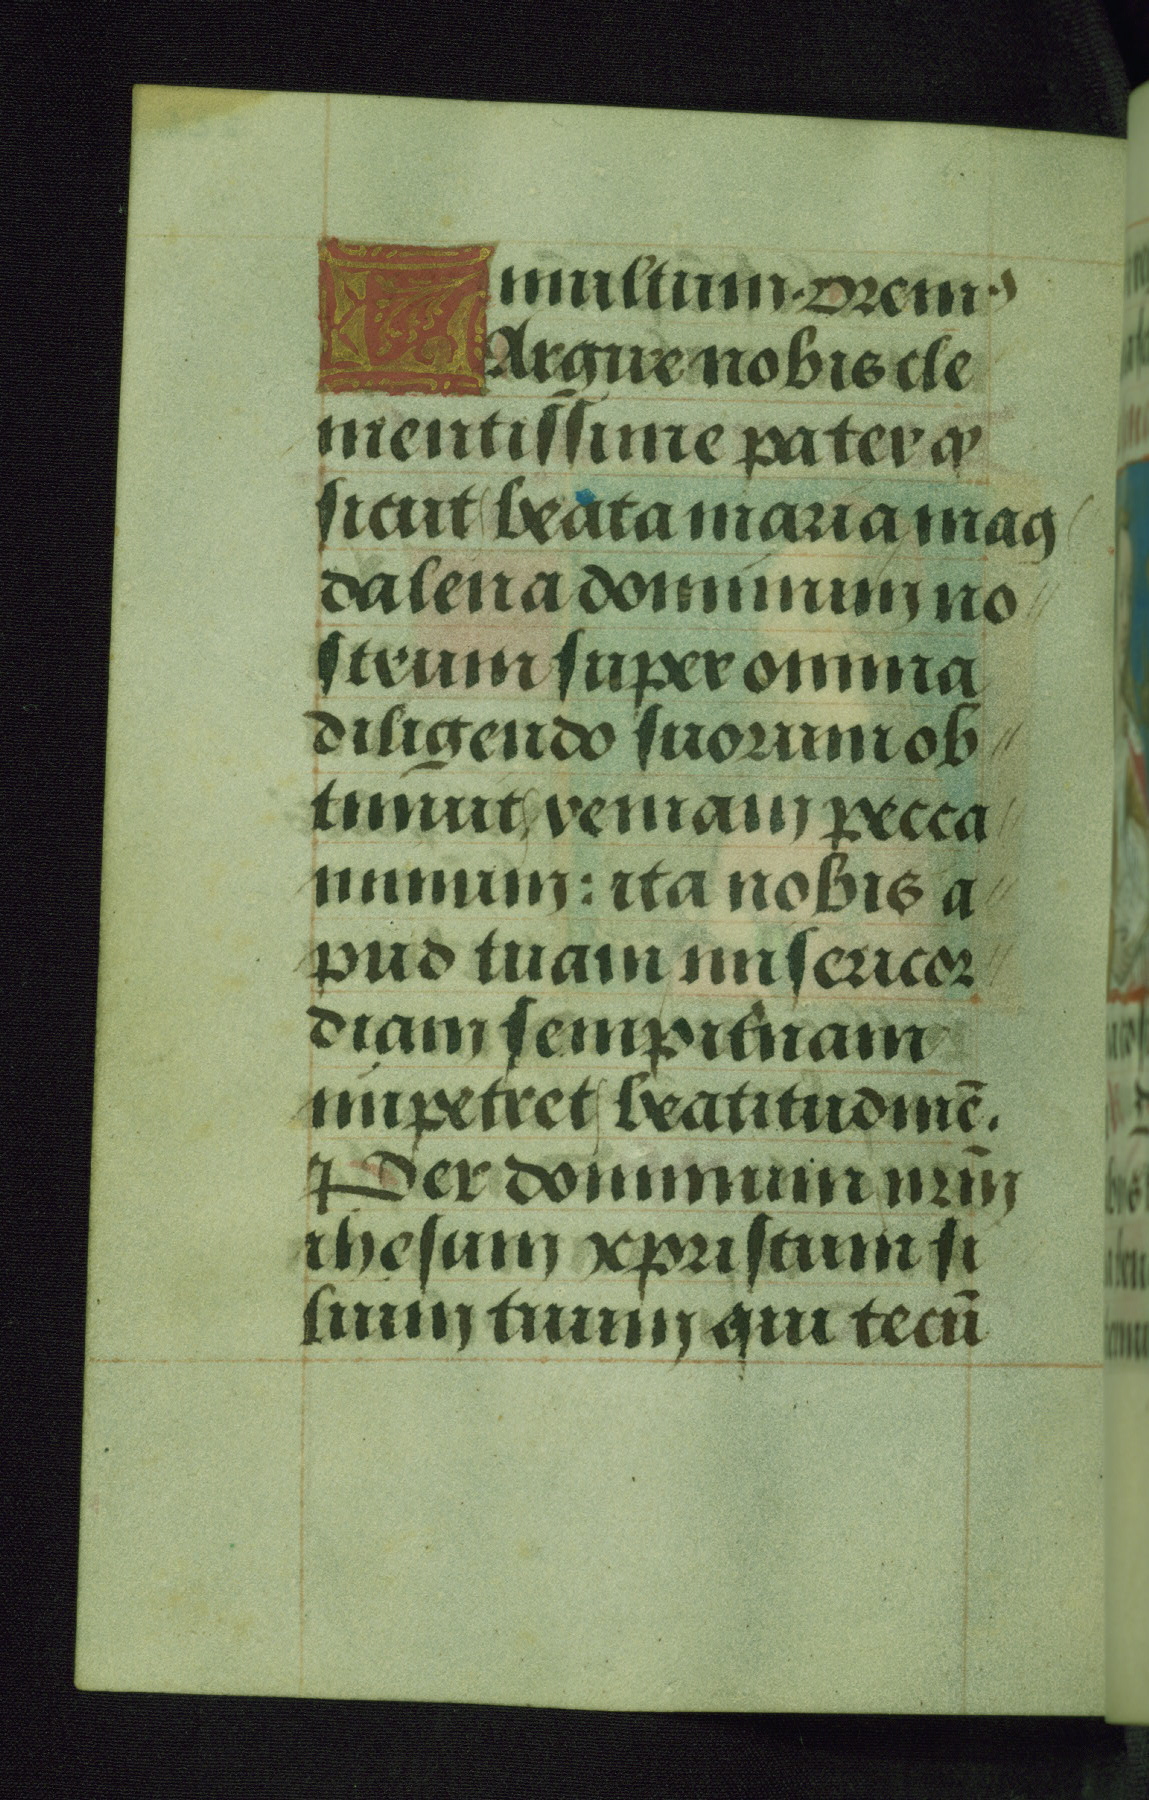 multum. Orem⁹
LArgire nobis cle
mentissime pater qͥ
sicut beata maria mag
dalena dominum no
strum super omnia
diligendo suorum ob
tinuit veniam pecca
minum: ita nobis a
pud tuam misericor
diam sempit̾nam
impetret beatitudinē.
Per dominum nr̄m
ihesum xpristum fi
lium tuum qui tecū